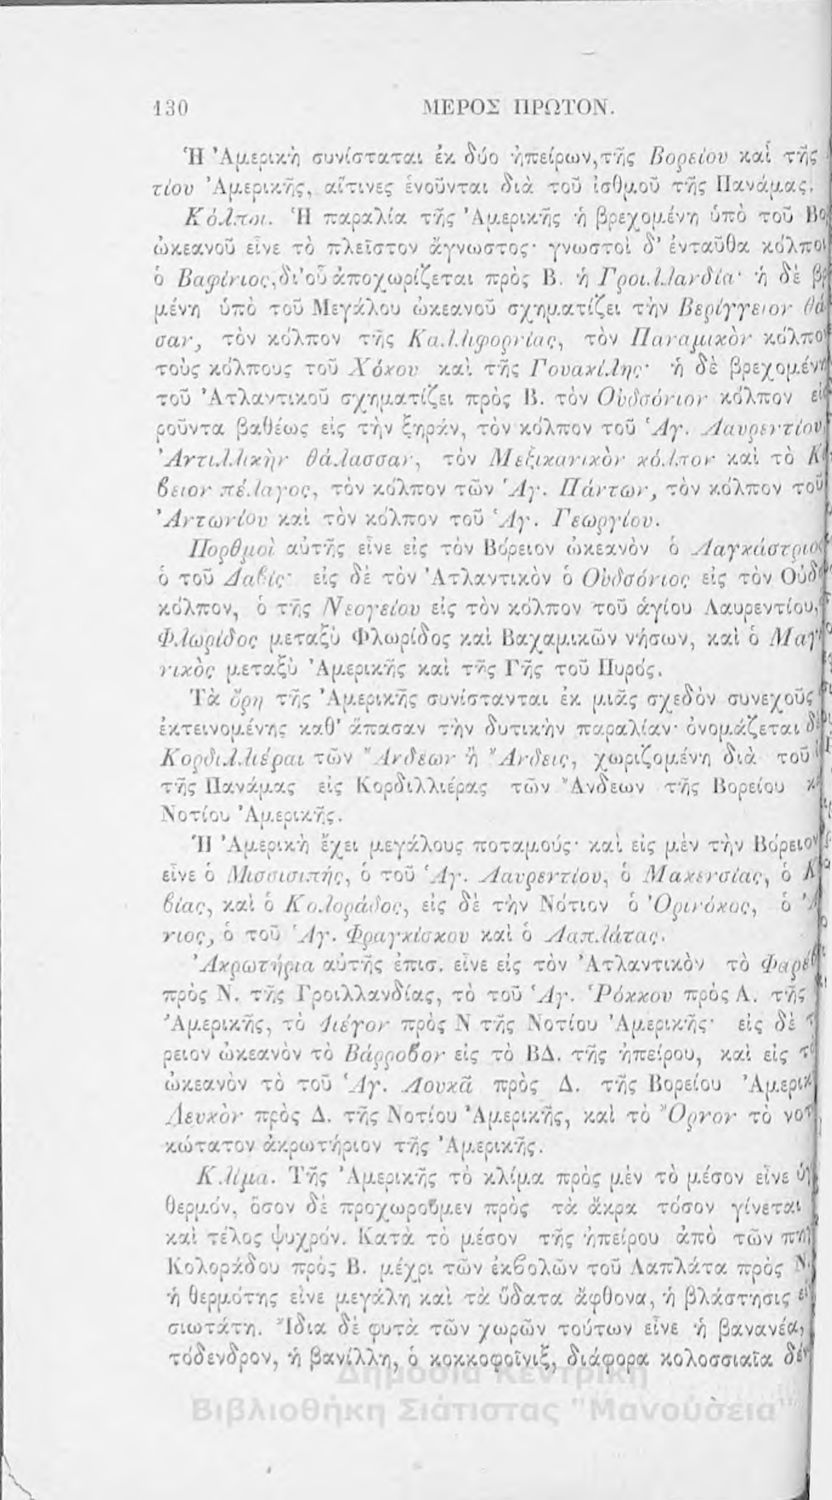 130 ΜΕΡΟΣ ΠΡΩΤΟΝ.
Ἡ Ἀμερικὴ συνίσταται ἐκ δύο ἠπείρων, τῆς Βορείου καὶ τῆς
τίου Ἀμερικῆς, αἵτινες ἑνοῦνται διὰ τοῦ ἰσθμοῦ τῆς Πανάμας.
Κόλποι. Ἡ παραλία τῆς Ἀμερικῆς ἡ βρεχομένη ὑπὸ τοῦ
ὠκεανοῦ εἶνε τὸ πλεῖστον ἄγνωστος· γνωστοὶ δ' ἐνταῦθα κόλποι
ὁ Βαφίνιος, δι' οὗ ἀποχωρίζεται πρὸς Β. ἡ Γροιλλανδία· ἡ δὲ
μένη ὑπὸ τοῦ Μεγάλου ὠκεανοῦ σχηματίζει τὴν Βερίγγειον
σαν, τὸν κόλπον τῆς Καλλιφορνίας, τὸν Παναμικὸν κόλπον
τοὺς κόλπους τοῦ Χόκου καὶ τῆς Γουακίλης· ἡ δὲ βρεχομένη
τοῦ Ἀτλαντικοῦ σχηματίζει πρὸς Β. τὸν Οὐδσόνιον κόλπον
ροῦντα βαθέως εἰς τὴν ξηράν, τὸν κόλπον τοῦ Ἁγ. Λαυρεντίου,
Ἀντιλλικὴν θάλασσαν, τὸν Μεξικανικὸν κόλπον καὶ τὸ
βειον πέλαγος, τὸν κόλπον τῶν Ἁγ. Πάντων, τὸν κόλπον τοῦ
Ἀντωνίου καὶ τὸν κόλπον τοῦ Ἁγ. Γεωργίου.
Πορθμοὶ αὐτῆς εἶνε εἰς τὸν Βόρειον ὠκεανὸν ὁ Λαγκάστριος
ὁ τοῦ Δαβίς· εἰς δὲ τὸν Ἀτλαντικὸν ὁ Οὐδσόνιος εἰς τὸν
κόλπον, ὁ τῆς Νεογείου εἰς τὸν κόλπον τοῦ ἁγίου Λαυρεντίου,
Φλωρίδος μεταξὺ Φλωρίδος καὶ Βαχαμικῶν νήσων, καὶ ὁ
νικὸς μεταξὺ Ἀμερικῆς καὶ τῆς Γῆς τοῦ Πυρός.
Τὰ ὄρη τῆς Ἀμερικῆς συνίστανται ἐκ μιᾶς σχεδὸν συνεχοῦς
ἐκτεινομένης καθ' ἅπασαν τὴν δυτικὴν παραλίαν· ὀνομάζεται
Κορδιλλιέραι τῶν Ἄνδεων ἢ Ἄνδεις, χωριζομένη διὰ τοῦ
τῆς Πανάμας εἰς Κορδιλλιέρας τῶν Ἄνδεων τῆς Βορείου
Νοτίου Ἀμερικῆς.
Ἡ Ἀμερικὴ ἔχει μεγάλους ποταμούς· καὶ εἰς μὲν τὴν Βόρειον
εἶνε ὁ Μισσισιπής, ὁ τοῦ Ἁγ. Λαυρεντίου, ὁ Μακενσίας, ὁ
βίας, καὶ ὁ Κολοράδος, εἰς δὲ τὴν Νότιον ὁ Ὀρινόκος, ὁ
νιος, ὁ τοῦ Ἁγ. Φραγκίσκου καὶ ὁ Λαπλάτας.
Ἀκρωτήρια αὐτῆς ἐπισ. εἶνε εἰς τὸν Ἀτλαντικὸν τὸ
πρὸς Ν. τῆς Γροιλλανδίας, τὸ τοῦ Ἁγ. Ῥόκκου πρὸς Α. τῆς
Ἀμερικῆς, τὸ Διέγον πρὸς Ν τῆς Νοτίου Ἀμερικῆς· εἰς δὲ
ρειον ὠκεανὸν τὸ Βάρροβον εἰς τὸ ΒΔ. τῆς ἠπείρου, καὶ εἰς
ὠκεανὸν τὸ τοῦ Ἁγ. Λουκᾶ πρὸς Δ. τῆς Βορείου
Λευκὸν πρὸς Δ. τῆς Νοτίου Ἀμερικῆς, καὶ τὸ Ὄρνον τὸ
κώτατον ἀκρωτήριον τῆς Ἀμερικῆς.
Κλίμα. Τῆς Ἀμερικῆς τὸ κλίμα πρὸς μὲν τὸ μέσον εἶνε
θερμόν, ὅσον δὲ προχωροῦμεν πρὸς τὰ ἄκρα τόσον γίνεται
καὶ τέλος ψυχρόν. Κατὰ τὸ μέσον τῆς ἠπείρου ἀπὸ τῶν
Κολοράδου πρὸς Β. μέχρι τῶν ἐκβολῶν τοῦ Λαπλάτα πρὸς Ν.
ἡ θερμότης εἶνε μεγάλη καὶ τὰ ὕδατα ἄφθονα, ἡ βλάστησις
σιωτάτη. Ἴδια δὲ φυτὰ τῶν χωρῶν τούτων εἶνε ἡ βανανέα,
τόδενδρον, ἡ βανίλλη, ὁ κοκκοφοῖνιξ, διάφορα κολοσσιαῖα
Δημόσια Κεντρική
Βιβλιοθήκη Σιάτιστας "Μανούσεια"